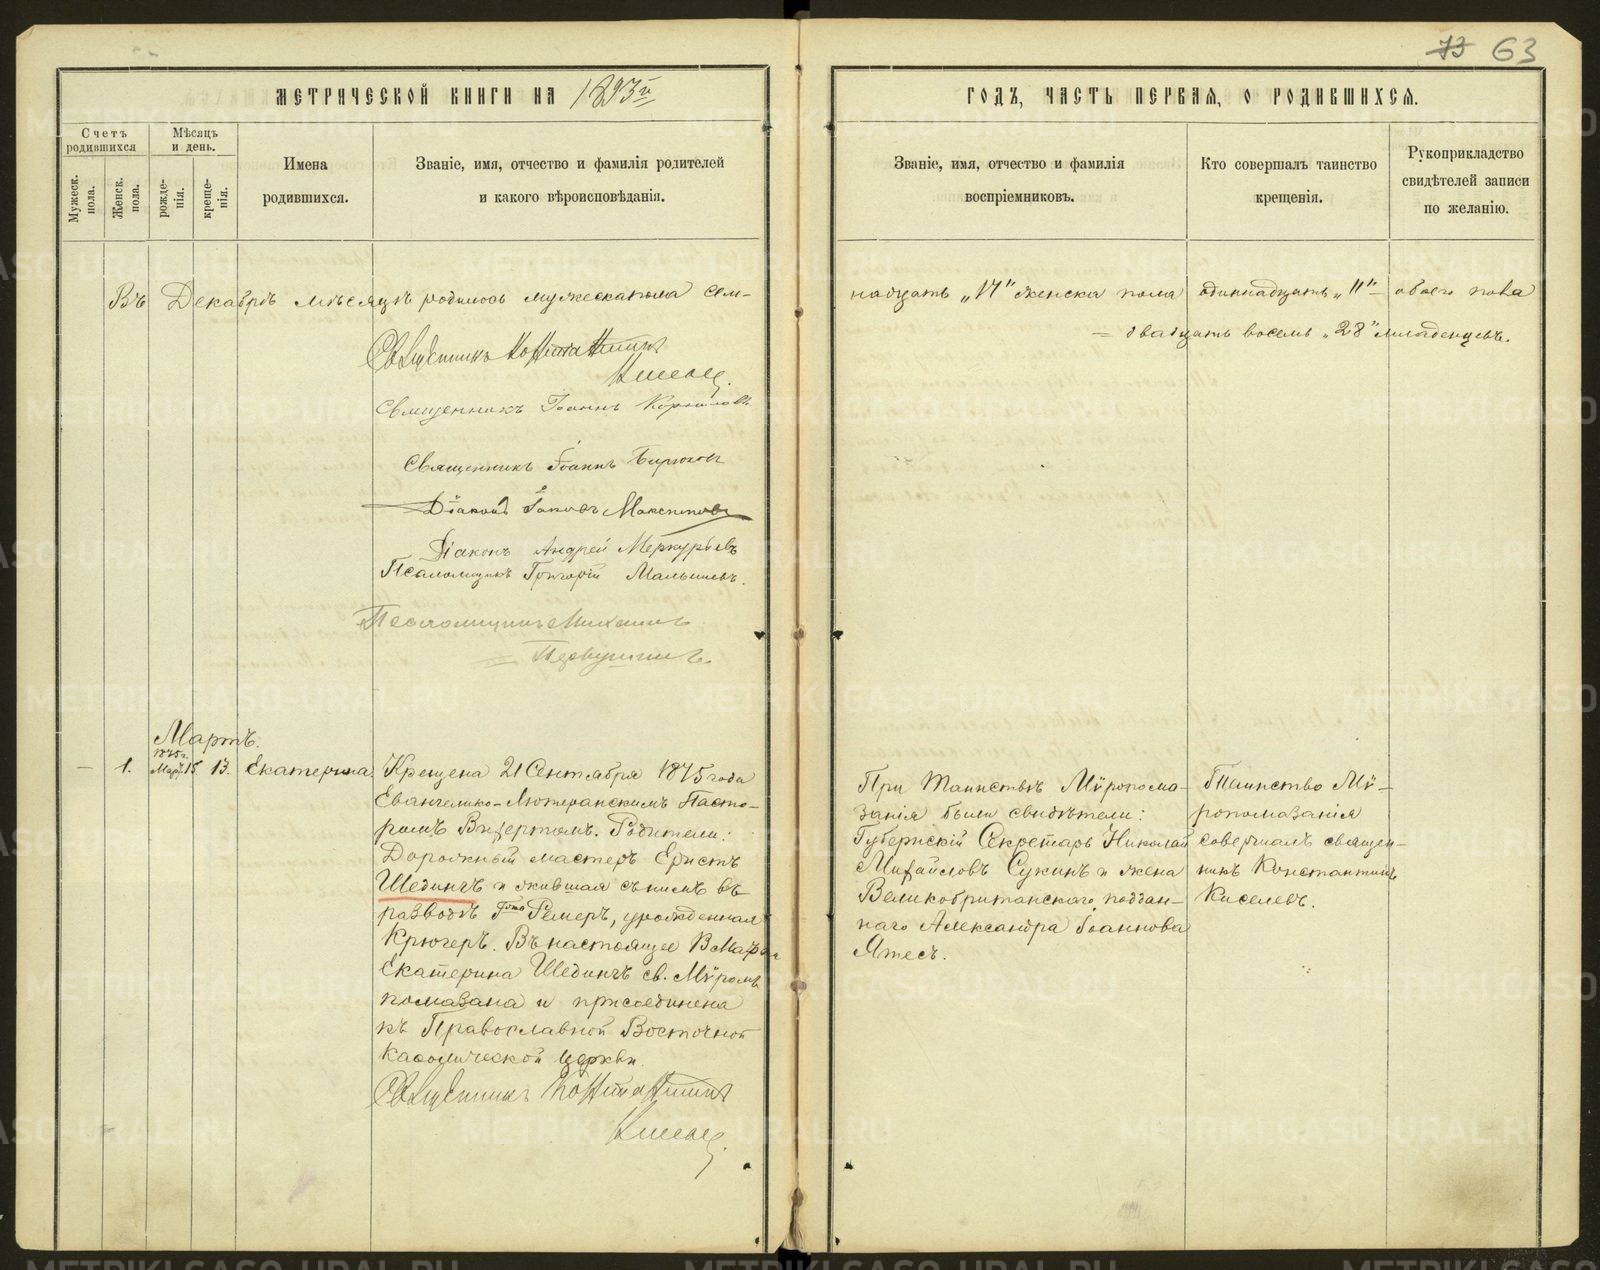 73 63
МЕТРИЧЕСКОЙ КНИГИ НА 1893й
Счетъ родившихся
Мужеск. пола.
Женск. пола.
Мѣсяцъ и день.
рожде-нія.
креще-нія.
Имена
родившихся.
Званіе, имя, отчество и фамилія родителей
и какого вѣроисповѣданія.
Въ Декабрѣ мѣсяцѣ родилось мужескаго пола сем-
Священникъ Константинъ
Киселевъ.
Священникъ Іоаннъ Корниловъ
Священникъ Іоаннъ Бирюковъ
Діаконъ Іаковъ Максимовъ
Діаконъ Андрей Меркурьевъ
Псаломщикъ Григорій Малышевъ.
Псаломщикъ Михаилъ
Первушинъ.
Мартъ.
— 1. 1875 г. Мар. 15 13. Екатерина
Крещена 21 Сентября 1875 года
Евангелико-Лютеранскимъ Пасто-
ромъ. Родители:
Дорожный мастеръ Ернстъ
Шединъ и жившая съ нимъ въ
разводѣ Г-жа Ремеръ, урожденная
Крюгеръ. Въ настоящее 13 Марта
Екатерина Шединъ св. Мѵромъ
помазана и присоединена
къ Православной Восточной
Каѳолической церкви.
Священникъ Константинъ
Киселевъ.
ГОДЪ, ЧАСТЬ ПЕРВАЯ, О РОДИВШИХСЯ.
Званіе, имя, отчество и фамилія
воспріемниковъ.
Кто совершалъ таинство
крещенія.
Рукоприкладство
свидѣтелей записи
по желанію.
надцать „17“ женска пола одиннадцать „11“ — обоего пола
= двадцать восемь „28“ младенцевъ.
При Таинствѣ Мѵропома-
занія были свидѣтели:
Губернскій Секретарь Николай
Михайловъ Сужинъ и жена
Великобританскаго поддан-
наго Александра Іоаннова
Ятесъ.
Таинство Мѵ-
ропомазанія
совершалъ священ-
никъ Константинъ
Киселевъ.
METRIKI.GASO-URAL.RU